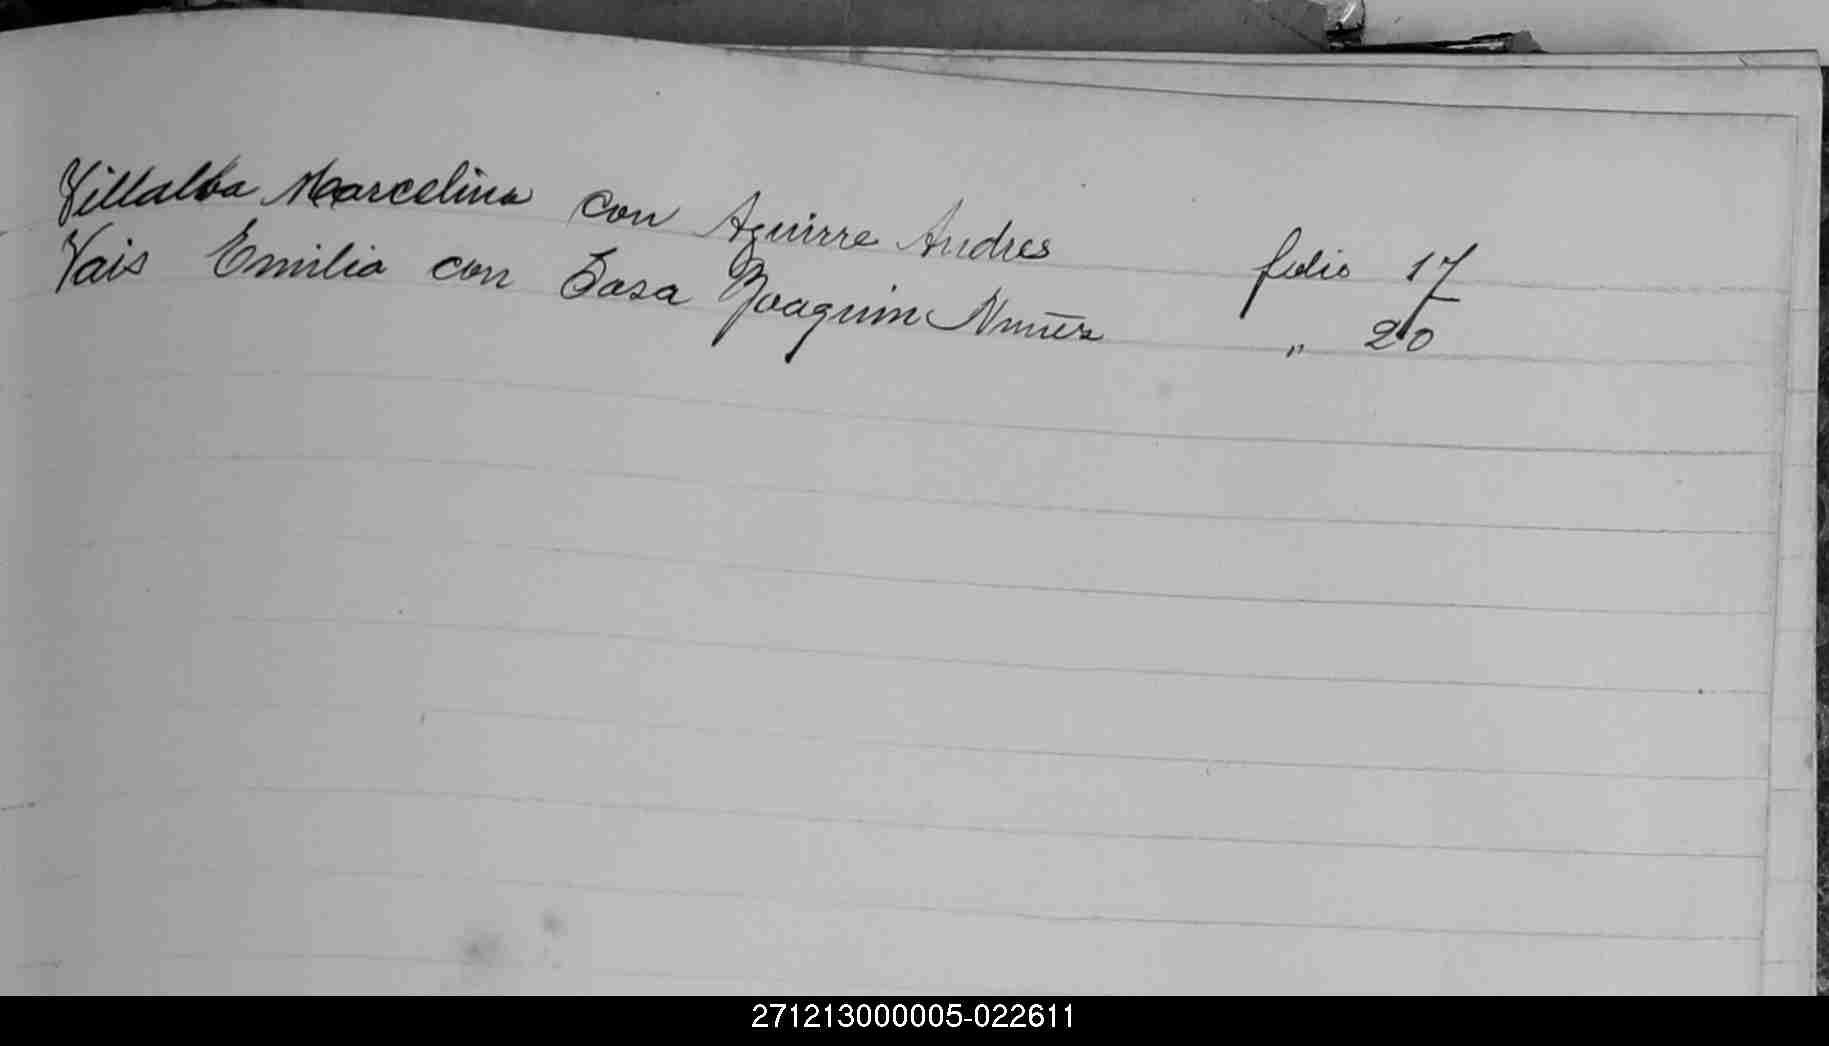 Villalba Marcelina con Aguirre Andres folio 17
Vais Emilia con Sasa Joaquim Nuñez " 20
271213000005-022611